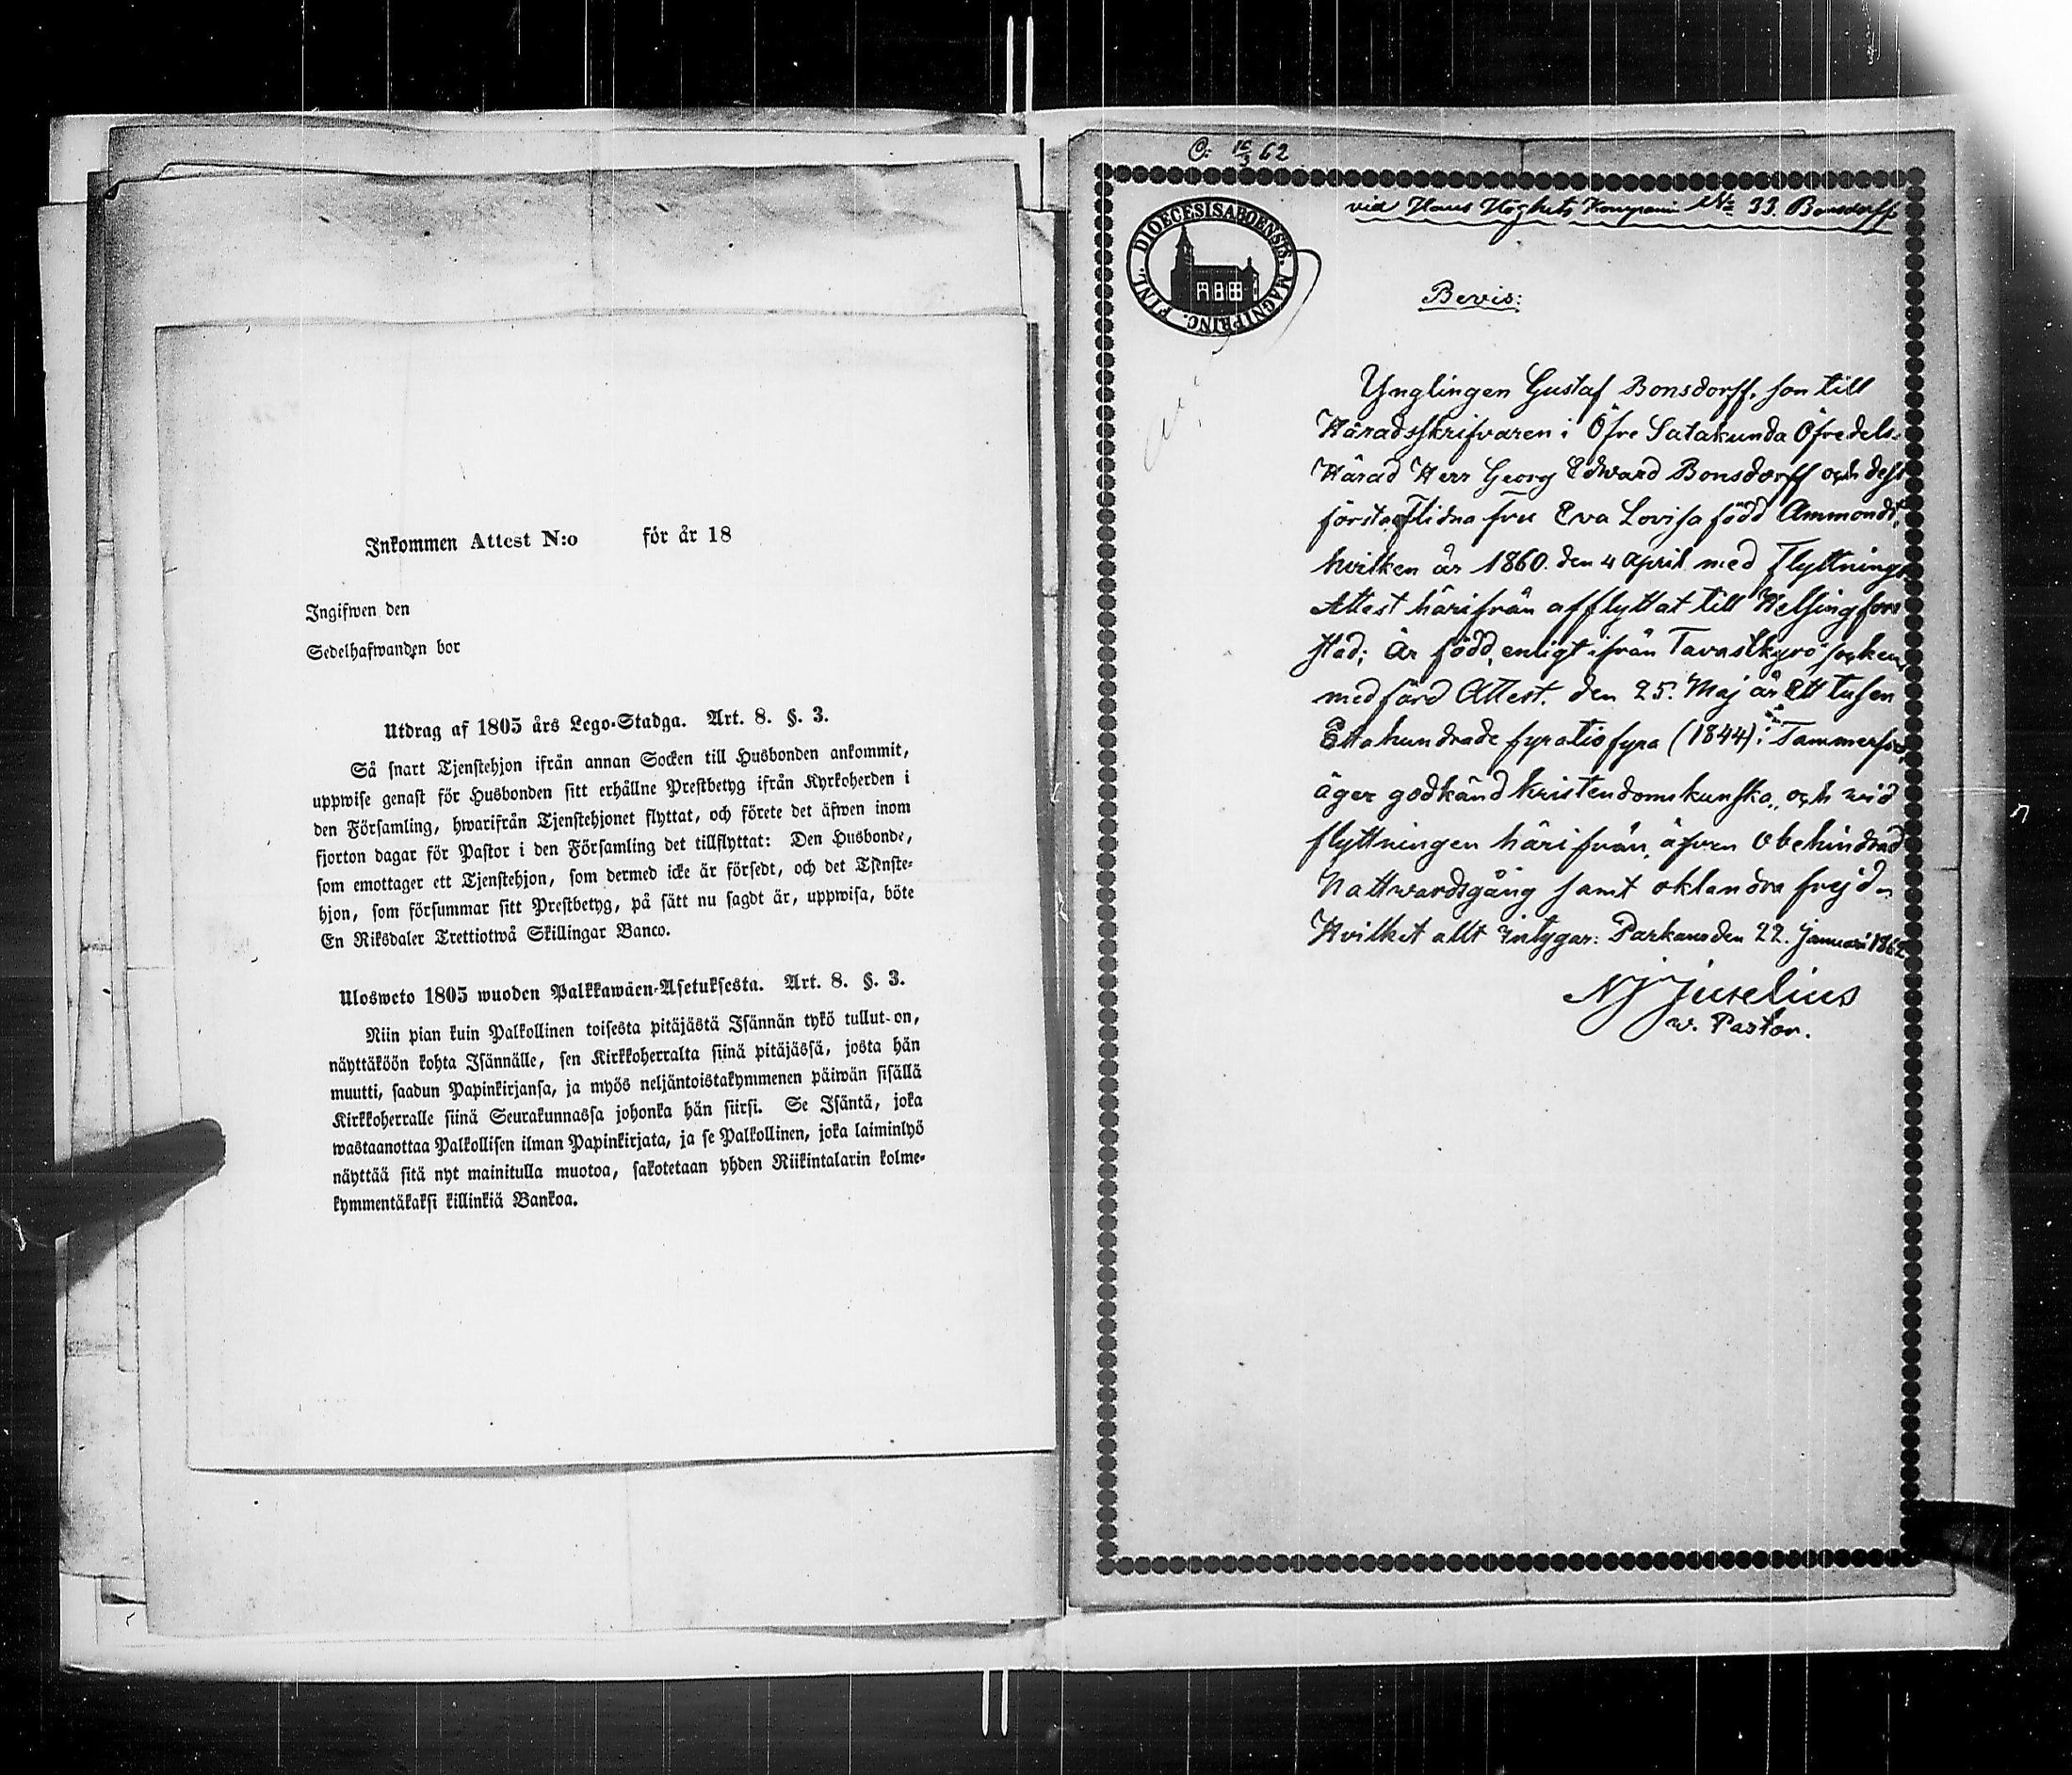 Inkommen Attest N:o för år 18
Ingifwen den
Sedelhafwanden bor
Utdrag af 1805 års Lego-Stadga. Art. 8. §. 3.
Så snart Tjenstehjon ifrån annan Socken till Husbonden ankommit,
uppwise genast för Husbonden sitt erhållne Prestbetyg ifrån Kyrkoherden i
den Församling, hwarifrån Tjenstehjonet flyttat, och förete det äfwen inom
fjorton dagar för Pastor i den Församling det tillflyttat: Den Husbonde,
som emottager ett Tjenstehjon, som dermed icke är försedt, och det Tjenste-
hjon, som försummar sitt Prestbetyg, på sätt nu sagdt är, uppwisa, böte
En Riksdaler Trettiotwå Skillingar Banco.
Ulosweto 1805 wuoden Palkkawäen-Asetuksesta. Art. 8. §. 3.
Niin pian kuin Palkollinen toisesta pitäjästä Isännän tykö tullut-on,
näyttäköön kohta Isännälle, sen Kirkkoherralta siinä pitäjässä, josta hän
muutti, saadun Papinkirjansa, ja myös neljäntoistakymmenen päiwän sisällä
Kirkkoherralle siinä Seurakunnassa johonka hän siirsi. Se Isäntä, joka
wastaanottaa Palkollisen ilman Papinkirjata, ja se Palkollinen, joka laiminlyö
näyttää sitä nyt mainitulla muotoa, sakotetaan yhden Riikintalarin kolme-
kymmentäkaksi killinkiä Bankoa.
62
vid Hans Höghets Kompani No 33. Bonsdorff
DIOECESIS ABOENSIS. MAGNI PRINC. FINL.
Bevis:
Ynglingen Gustaf Bonsdorff, son till
Häradsskrifvaren i Öfre Satakunda Öfredels-
Härad Herr Georg Edward Bonsdorff och dess
första aflidna fru Eva Lovisa född Ammondt,
hvilken år 1860. den 4 April med Flyttnings
Attest härifrån afflyttat till Helsingfors
stad; är född, enligt ifrån Tavastkyro socken
medförd Attest. den 25. Maj år Ett tusen
Ettahundrade fyratiofyra (1844) i Tammerfors,
äger godkänd kristendomskunskap, och vid
flyttningen härifrån, äfven obehindrad
Nattvardsgång samt oklandrad frejd.
Hvilket allt intygar: Parkano den 22. Januari 1862
N J Juselius
v. Pastor.